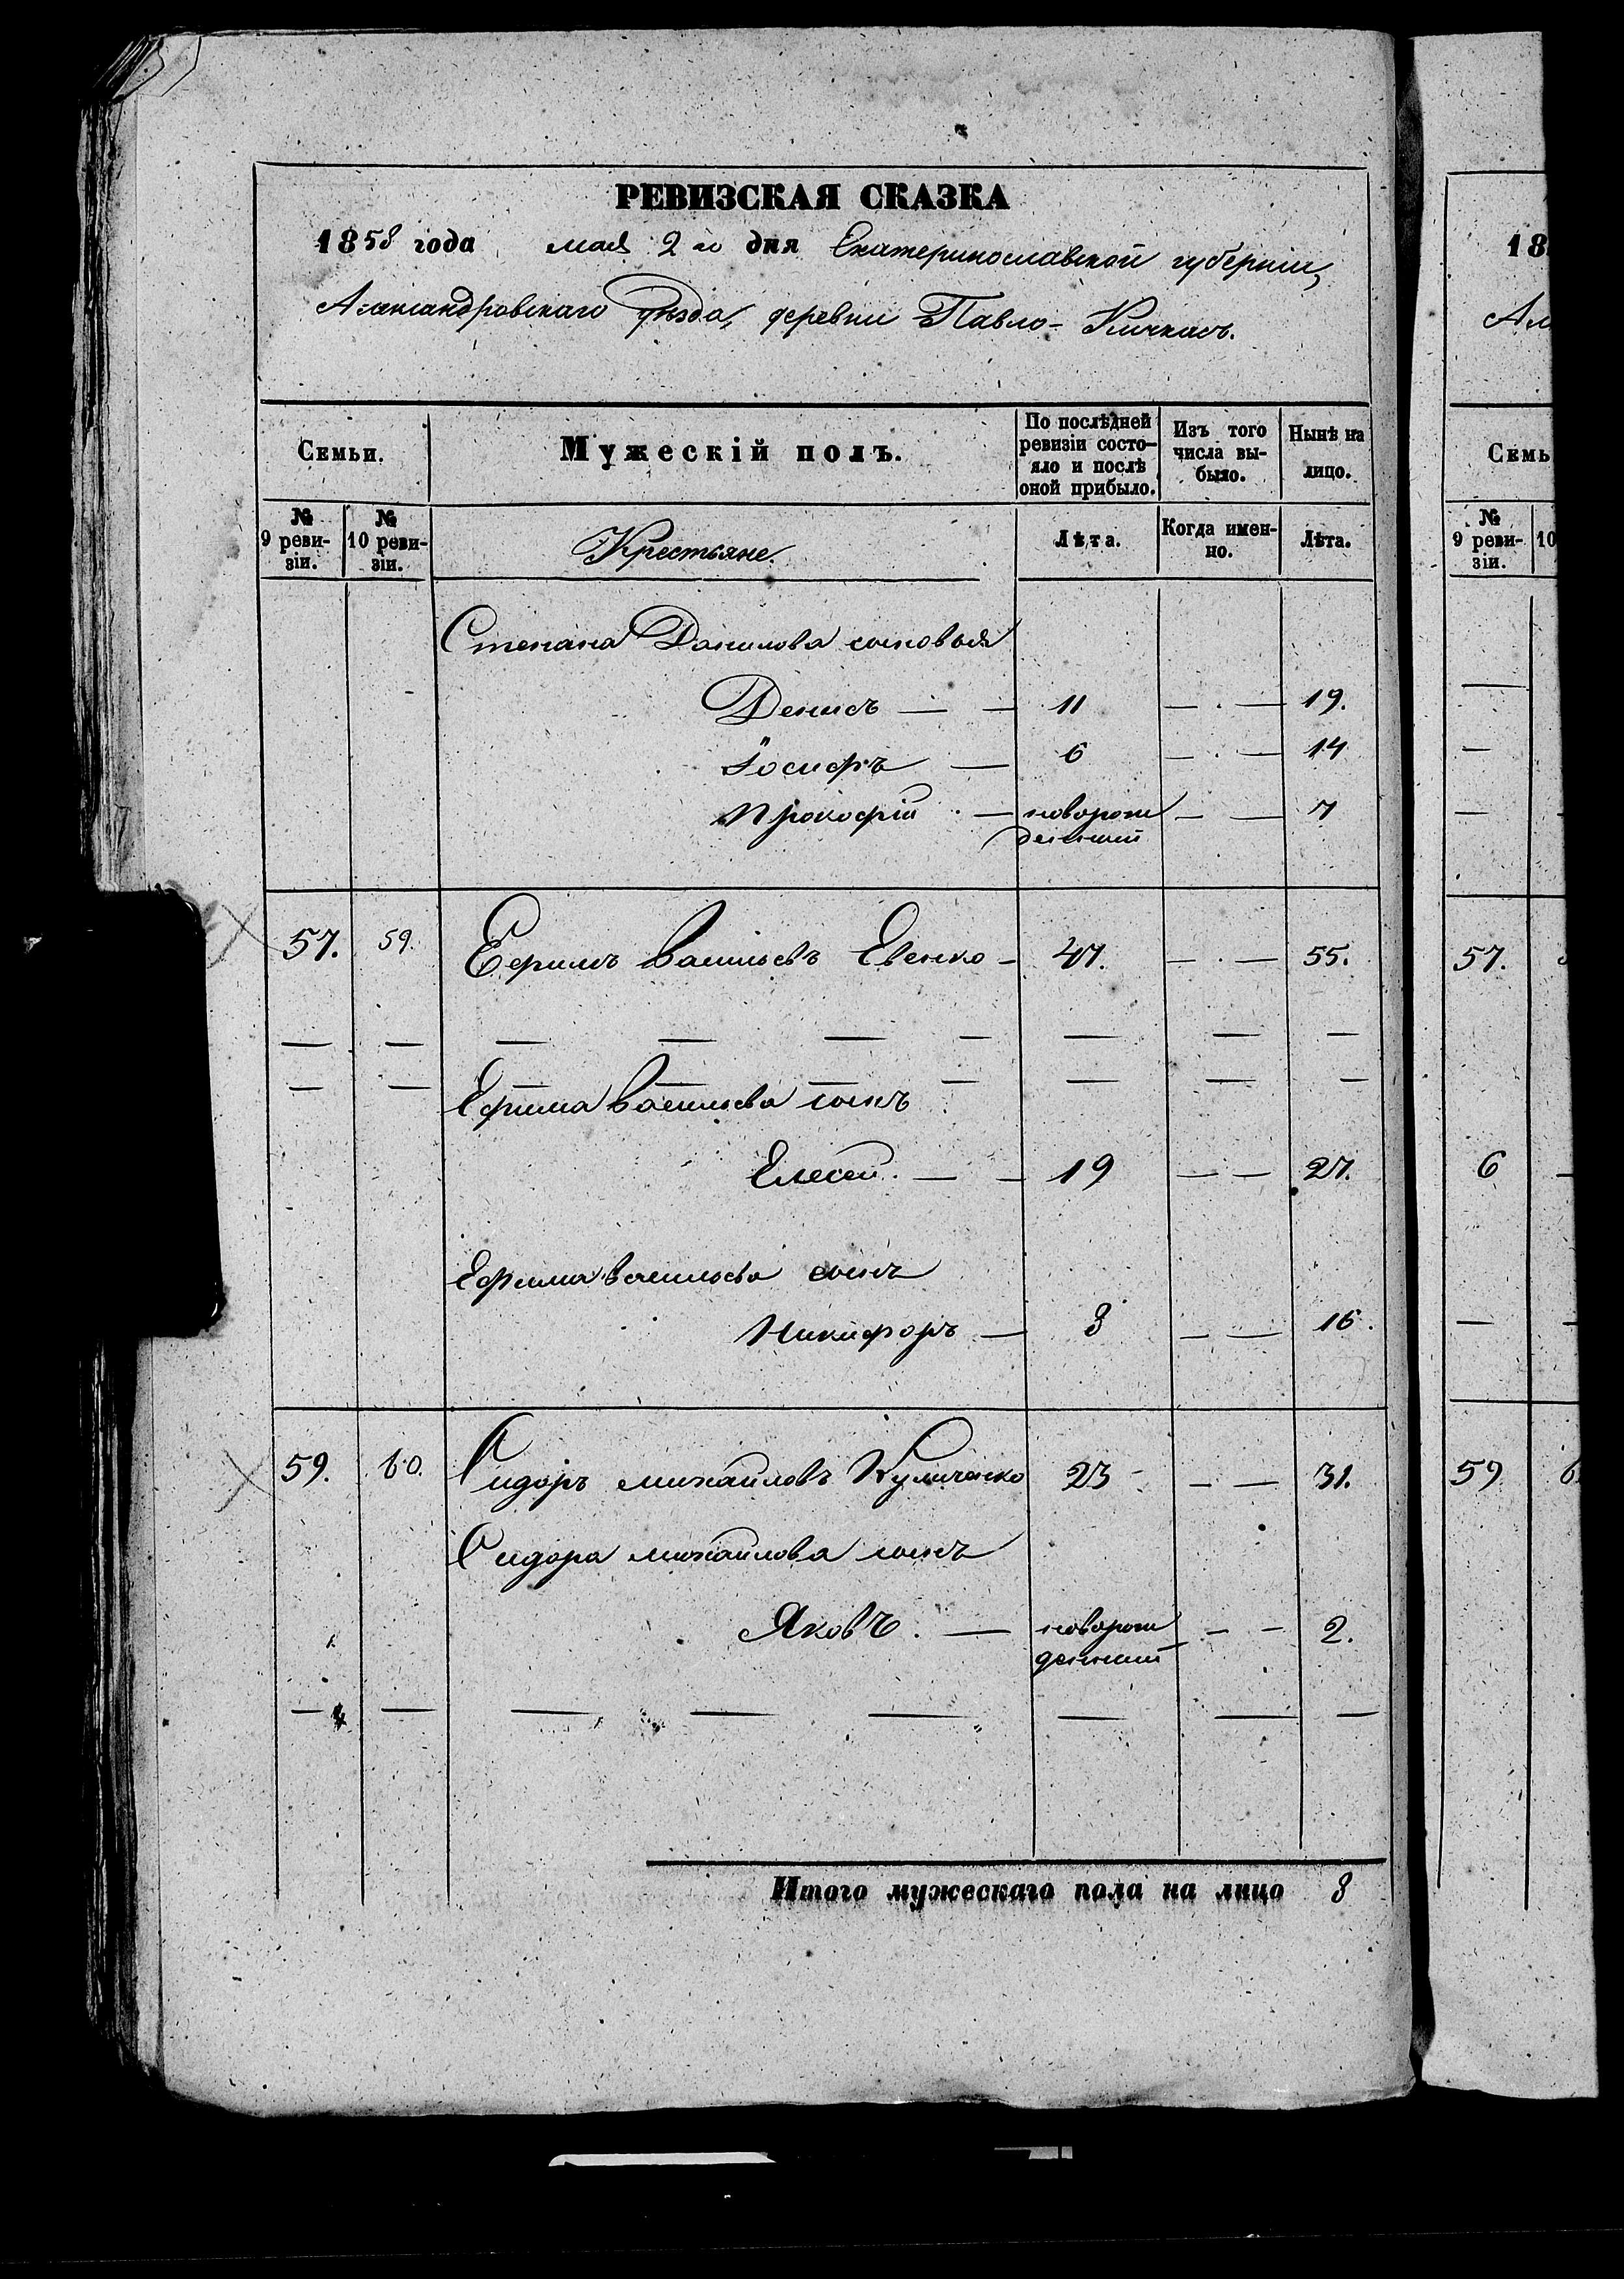 РЕВИЗСКАЯ СКАЗКА
1858 года мая 2 го дня Екатеринославской губернiи,
Александровскаго уѣзда, деревни Павло-Кичкасъ.
Семьи.
Мужескiй полъ.
По послѣдней ревизiи состо-
яло и послѣ оной прибыло.
Изъ того числа вы-
было.
Нынѣ на лицо.
№ 9 реви-
зiи.
№ 10 реви-
зiи.
Крестьяне.
Лѣта.
Когда имен-
но.
Лѣта.
Степана Данилова сыновья
Денисъ — — 11 — — 19.
Iосифъ — 6 — — 14
Прокофiй — новорож — — 7
денный
57. 59. Ефимъ Васильевъ Евенко — 47. — — 55.
Ефима Васильева сынъ
Елесей. — — 19 — — 27.
Ефима Васильева сынъ
Никифоръ — 8 — — 16.
59. 60. Сидоръ Михайловъ Куличенко 23 — — 31.
Сидора Михайлова сынъ
Яковъ. — новорож — — 2.
денный
Итого мужескаго пола на лицо 8
18
Ал
Семь
№ 9 реви-
зiи.
10
57.
6
59 6